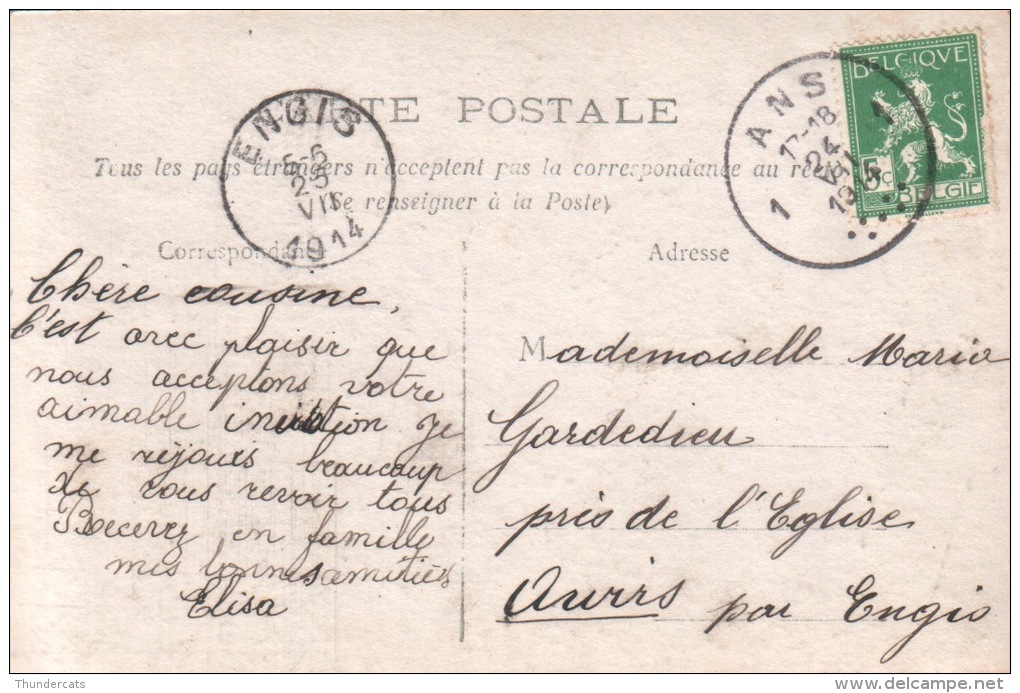 CARTE POSTALE
Tous les pays étrangers n'acceptent pas la correspondance au recto
(Se renseigner à la Poste)
ENGIS
5-6
25
VII
1914
ANS
17-18
24
VII
1914
1 1
BELGIQVE
5c
BELGIE
Correspondance
Chère cousine,
C'est avec plaisir que
nous acceptons votre
aimable invitation Je
me réjouis beaucoup
de vous revoir tous
Recevez en famille
mes bonnes amitiés
Elisa
Adresse
Mademoiselle Maria
Gardedieu
près de l'Eglise
Awirs par Engis
Thundercats
delcampe.net